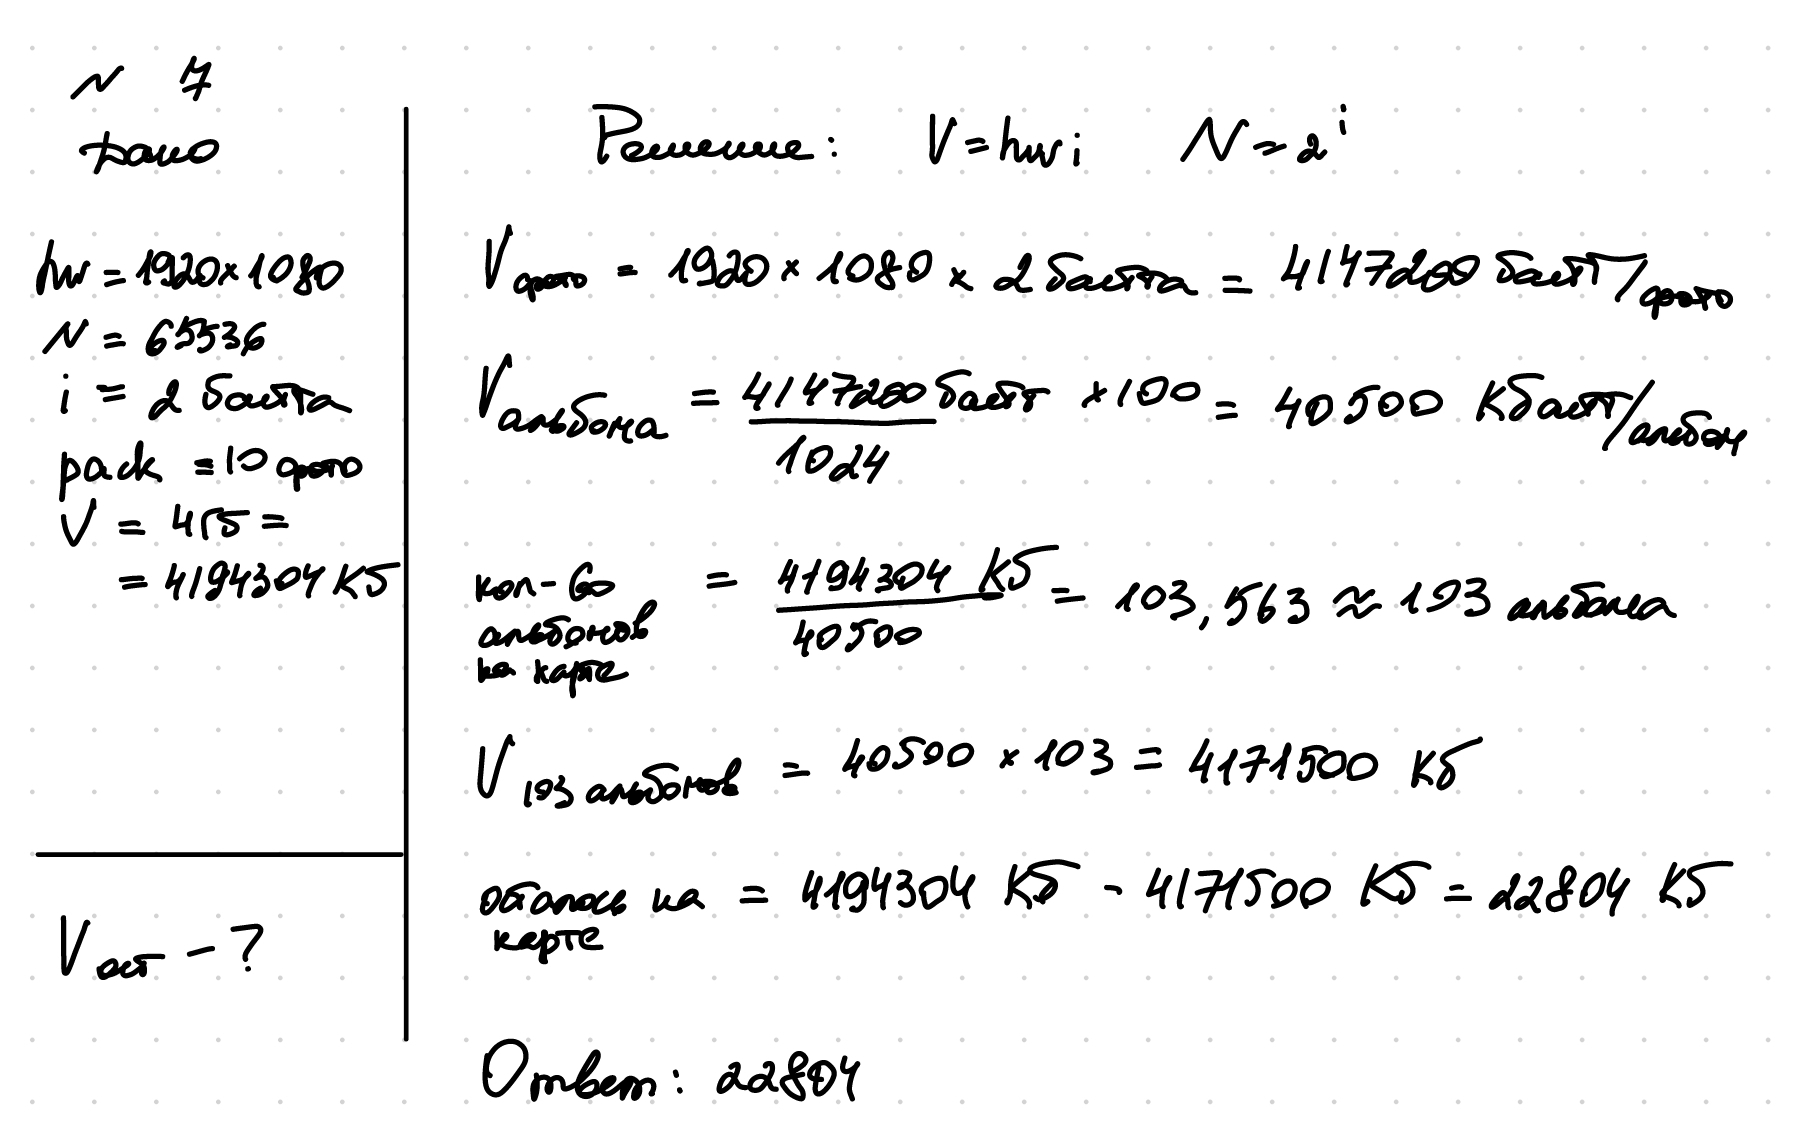 N 7
Дано
hw = 1920 × 1080
N = 65536
i = 2 байта
pack = 10 фото
V = 4ГБ =
= 4194304 КБ
Vост - ?
Решение: V = hwi N = 2^i
Vфото = 1920 × 1080 × 2 байта = 4147200 байт/фото
Vальбома = 4147200 байт / 1024 × 100 = 40500 Кбайт/альбом
кол-во альбомов на карте = 4194304 КБ / 40500 = 103,563 ≈ 103 альбома
V103 альбомов = 40500 × 103 = 4171500 Кб
осталось на карте = 4194304 КБ - 4171500 КБ = 22804 КБ
Ответ: 22804